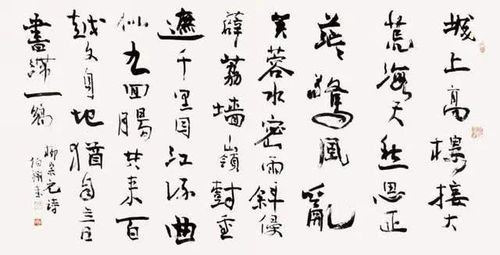 城上高樓接大
荒海天愁思正
茫驚風亂
芙蓉水密雨斜侵
薜荔墙嶺樹重
遮千里目江流曲
似九回腸共来百
越文身地猶自音
書滞一鄉
柳宗元诗